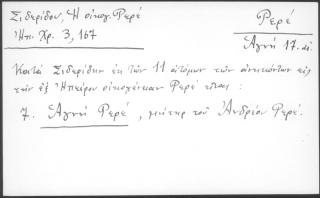 Σιδερίδου, Ἡ οἰκογ. Ρερέ
Ἠπ. Χρ. 3, 167
Ρερέ
Ἁγνή 17. αἰ.
Κατά Σιδερίδην ἐκ τῶν 11 ἀτόμων τῶν ἀνηκόντων εἰς
τήν ἐξ Ἠπείρου οἰκογένειαν Ρερέ εἶναι :
7. Ἁγνή Ρερέ, μήτηρ τοῦ Ἀνδρέου Ρερέ.